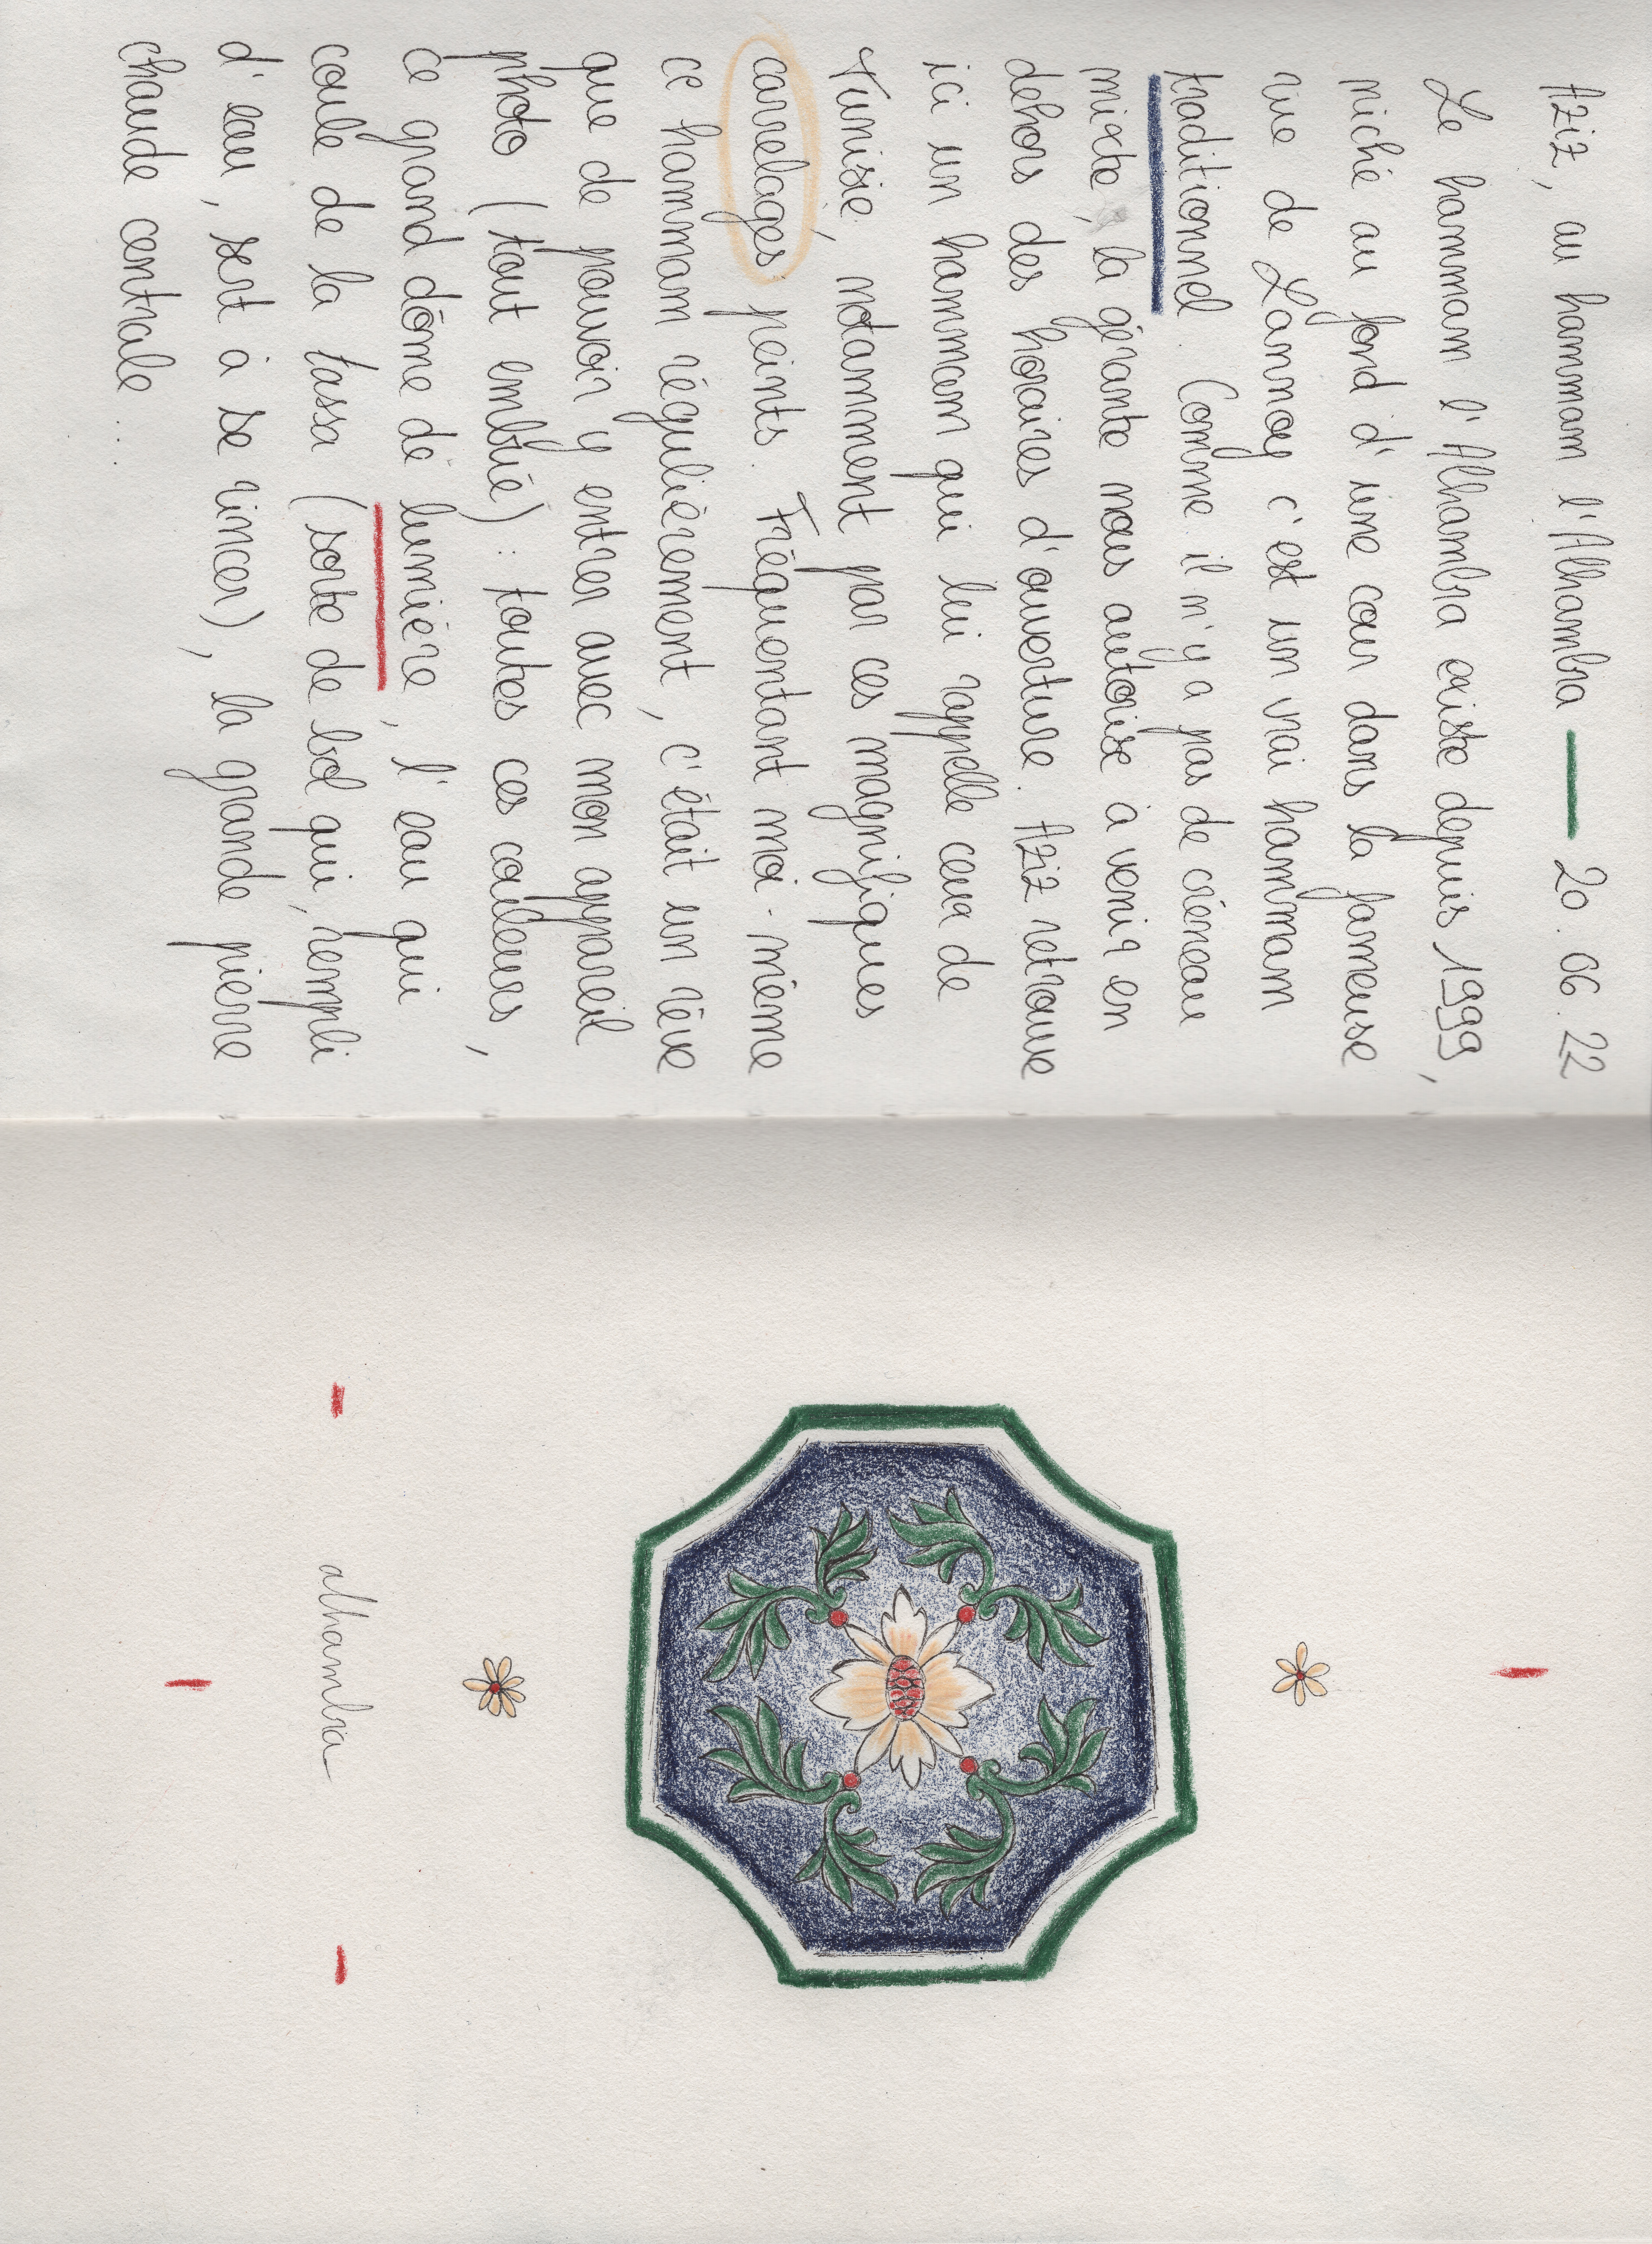 Aziz, au hammam l'Alhambra — 20.06.22
Le hammam l'Alhambra existe depuis 1999,
niché au fond d'une cour dans la fameuse
rue de Lannoy c'est un vrai hammam
traditionnel. Comme il n'y a pas de créneau
mixte, la gérante nous autorise à venir en
dehors des horaires d'ouverture. Aziz retrouve
ici un hammam qui lui rappelle ceux de
Tunisie, notamment par ces magnifiques
carrelages peints. Fréquentant moi-même
ce hammam régulièrement, c'était un rêve
que de pouvoir y entrer avec mon appareil
photo (tout embué) : toutes ces couleurs,
ce grand dôme de lumière, l'eau qui
coule de la tassa (sorte de bol qui, rempli
d'eau, sert à se rincer), la grande pierre
chaude centrale...
alhambra